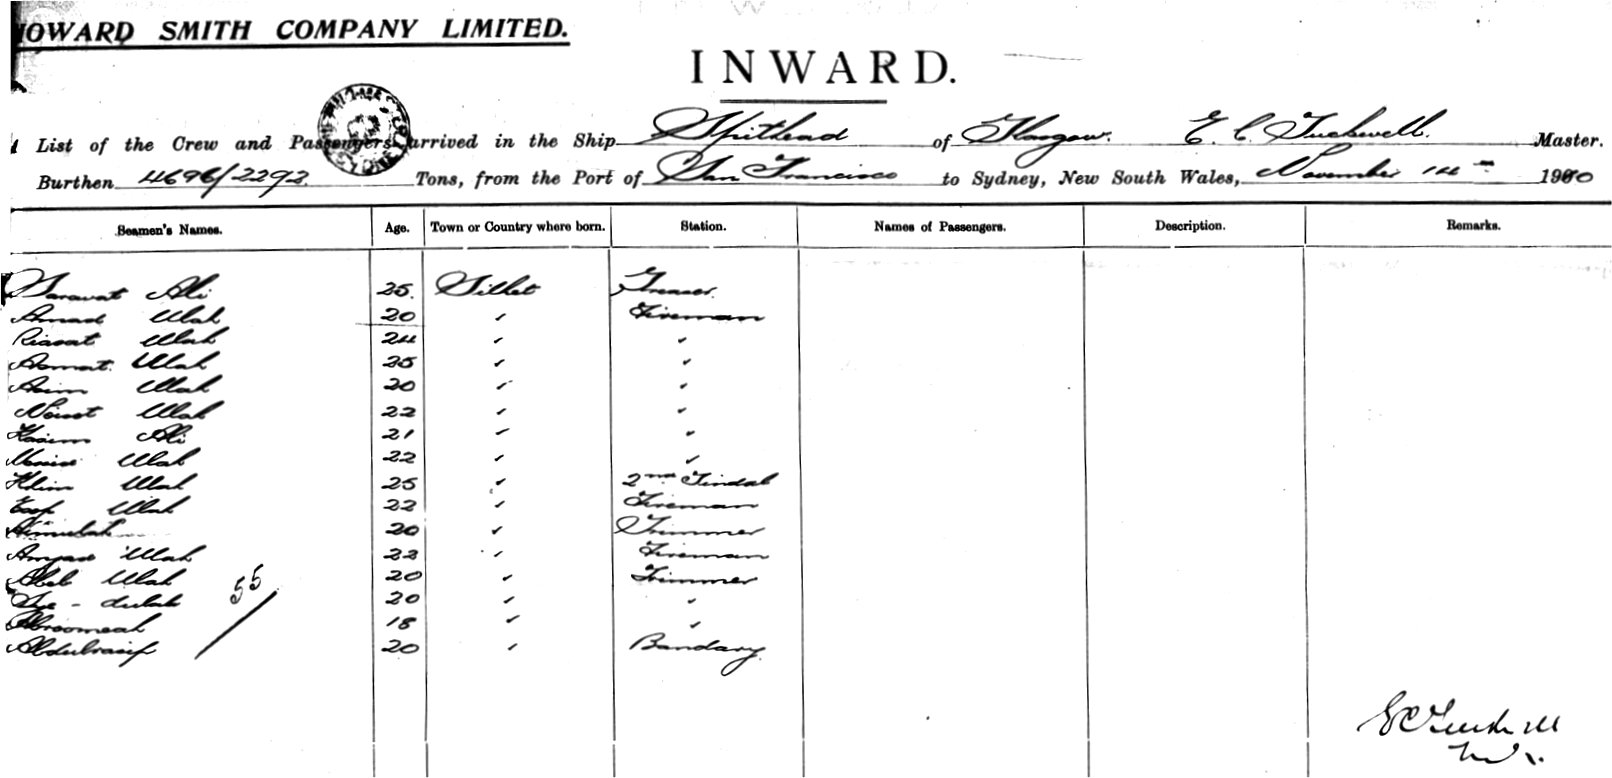 HOWARD SMITH COMPANY LIMITED.
INWARD.
List of the Crew and Passengers arrived in the Ship Spithead of Glasgow. E. C. Tuckwell. Master.
Burthen 4696/2292 Tons, from the Port of San Francisco to Sydney, New South Wales, November 14th 1900
Seamen's Names. Age. Town or Country where born. Station. Names of Passengers. Description. Remarks.
Sarawat Ali 25. Silhet Greaser.
Amad Ulah 20 " Fireman
Riasat Ulah 24 " "
Asmat Ulah 25 " "
Asim Ulah 20 " "
Ulah 22 " "
Kasim Ali 21 " "
Ulah 22 " "
Klim Ulah 25 " 2nd Tindal
Esop Ulah 22 " Fireman
20 " Trimmer
Ulah 22 " Fireman
Abel Ulah 20 " Trimmer
55
20 " "
18 " "
20 " Bandary.
E C Tuckwell